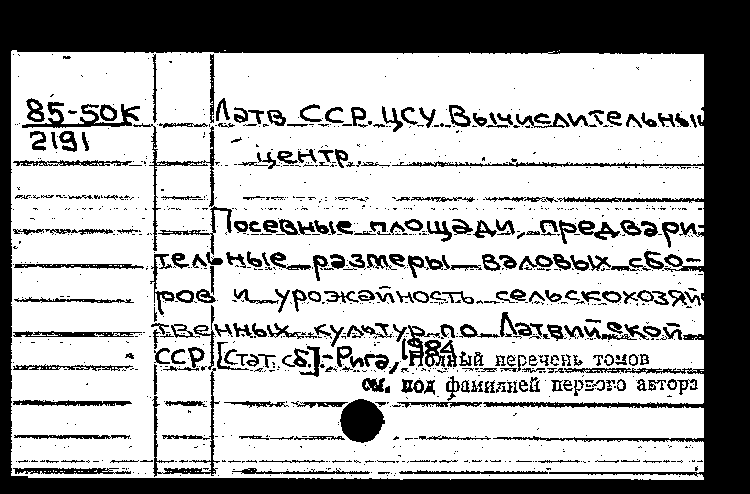 85-50К
2191
Латв ССР. ЦСУ Вычислительный
центр.
Посевные площади, предвари-
тельные размеры валовых сбо-
ров и урожайность сельскохозяй
твенных культур по Латвийской
ССР [Стат. сб.].-Рига, 1984
Полный перечень томов
см. под фамилией первого автора